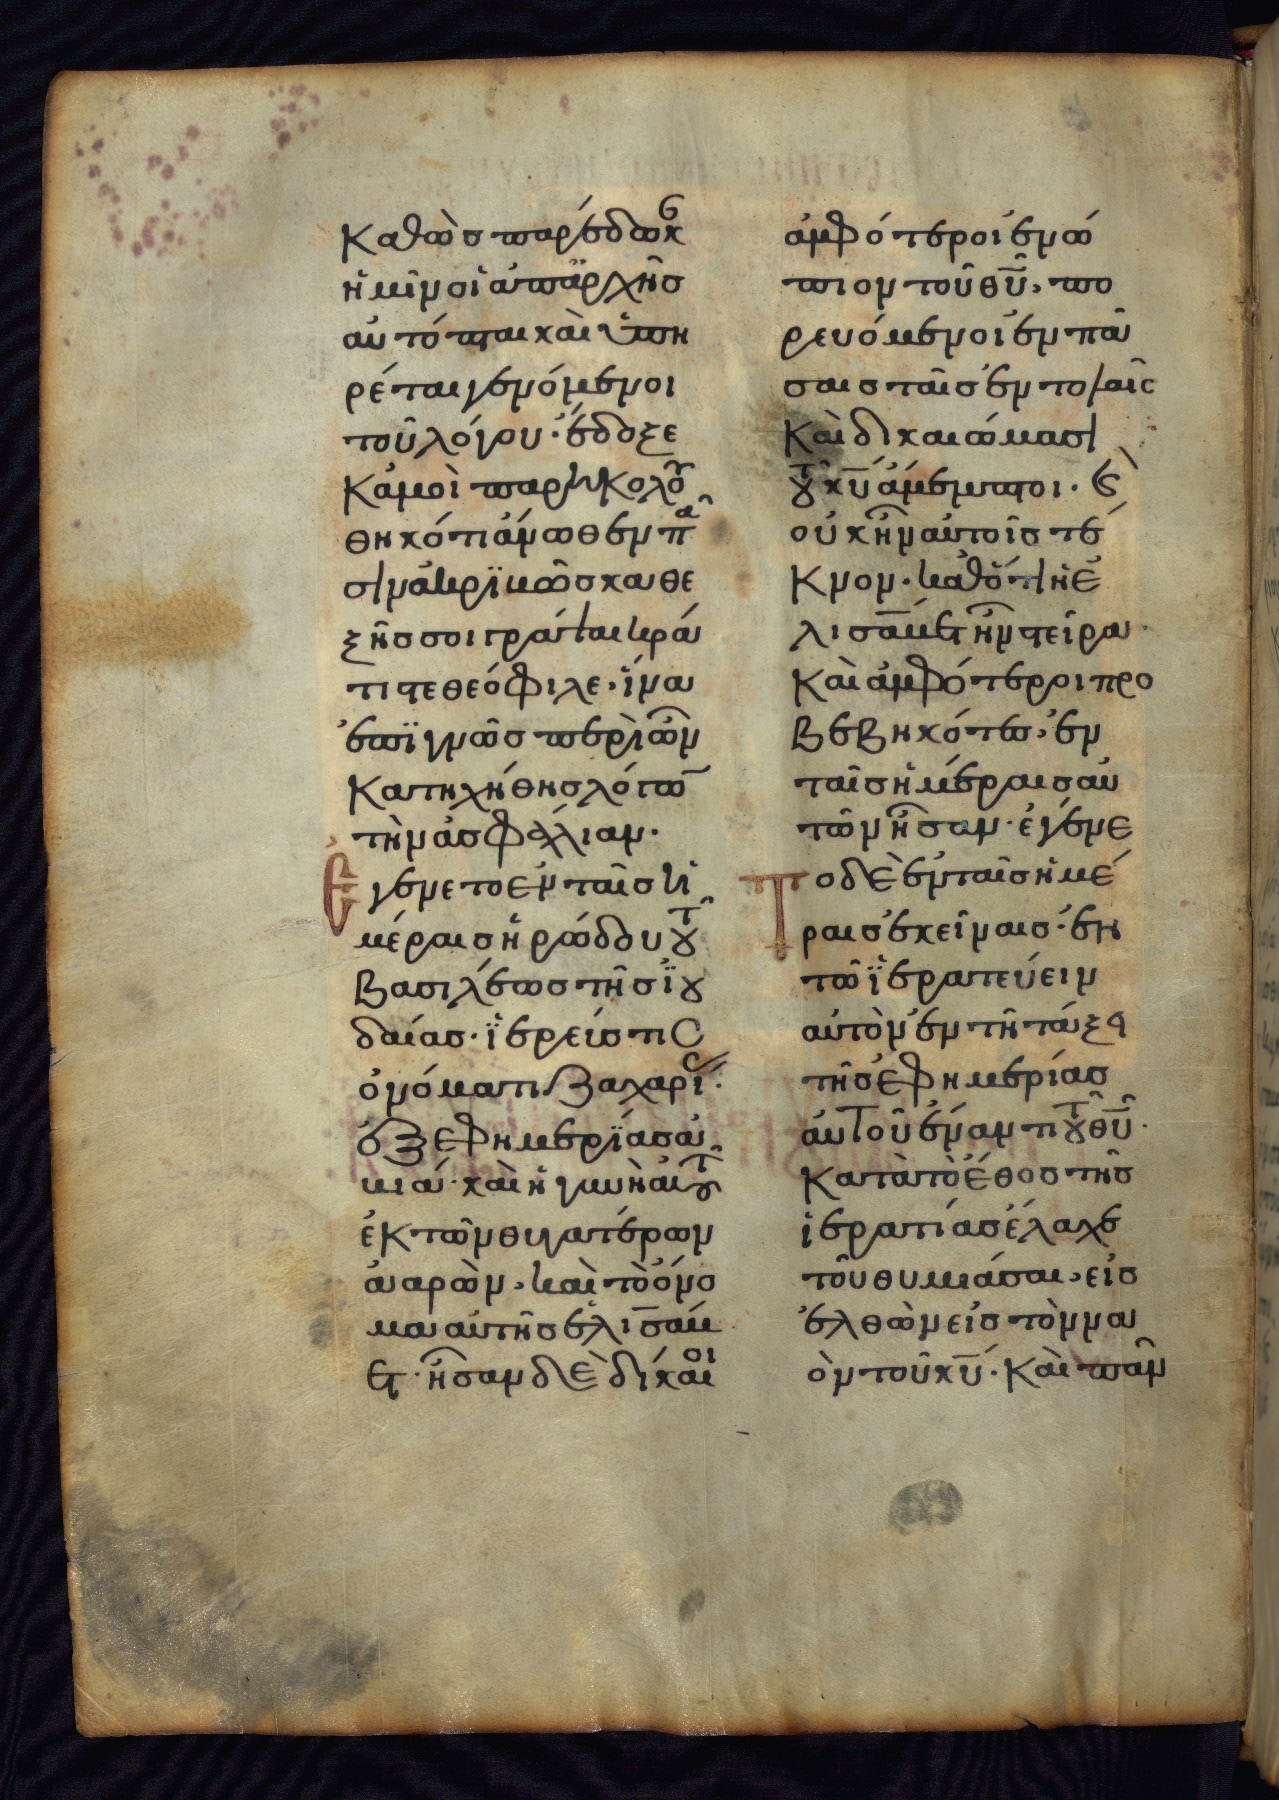 Καθὼς παρέδωκε
ἡμῖν οἱ ἀπαρχῆς
αὐτόπται καὶ ὑπη
ρέται γενόμενοι
τοῦ λόγου · ἔδοξε
Κἀμοὶ παρηκολου
θηκότι ἄνωθεν πᾶ
σιν ἀκριβῶς καθε
ξῆς σοι γράψαι κρά
τιστε θεόφιλε · ἵνα
ἐπιγνῶς περὶ ὧν
Κατηχήθης λόγων
τὴν ἀσφάλιαν ·
Εγενετο ἐν ταῖς ἡ
μέραις ἡρώδου τοῦ
Βασιλέως τῆς ϊου
δαίας · ϊερεύς τις
ὀνόματι Ζαχαρίας ·
ἐξ ἐφημερϊας ἀ
βιά · καὶ ἡ γυνὴ αὐτοῦ
ἐκ τῶν θυγατέρων
ἀαρὼν · καὶ τὸ ὄνο
μα αὐτῆς ἐλισάβ
ετ · ἦσαν δὲ δίκαιοι
ἀμφότεροι ἐνώ
πιον τοῦ θ̅υ̅ · πο
ρευόμενοι ἐν πά
σαις ταῖς ἐντολαῖς
Καὶ δικαιώμασι
τοῦ κ̅υ̅ ἄμεμπτοι · Καὶ
οὐκ ἦν αὐτοῖς τέ
Κνον · καθότι ἡ ἐ
λισάβετ ἦν στεῖρα ·
Καὶ ἀμφότεροι προ
Βεβηκότες · ἐν
ταῖς ἡμέραις αὐ
τῶν ἦσαν · ἐγένε
Το δὲ ἐν ταῖς ἡμέ
ραις ἐκείναις · ἐν
τῶ ϊερατεύειν
αὐτὸν ἐν τῆ τάξει
τῆς ἐφημερίας
αὐτοῦ ἔναντι τοῦ θ̅υ̅ ·
Κατὰ τὸ ἔθος τῆς
ἱερατίας ἔλαχε
τοῦ θυμιάσαι · εἰσ
ελθὼν εἰς τὸν να
ὸν τοῦ κ̅υ̅ · Καὶ πᾶν